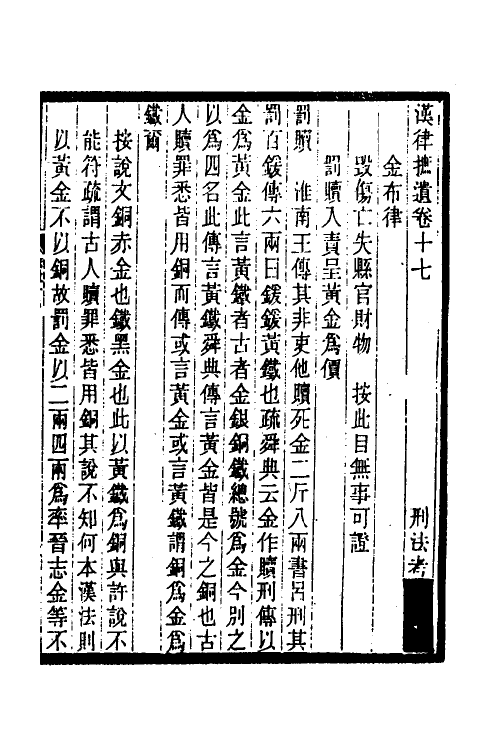 漢律摭遺卷十七　刑法考
金布律
毀傷亡失縣官財物　按此目無事可證
罰贖入責呈黃金爲價
罰贖　淮南王傳其非吏他贖死金二斤八兩書呂刑其
罰百鍰傳六兩曰鍰鍰黃鐵也疏舜典云金作贖刑傳以
金爲黃金此言黃鐵者古者金銀銅鐵總號爲金今別之
以爲四名此傳言黃鐵舜典傳言黃金皆是今之銅也古
人贖罪悉皆用銅而傳或言黃金或言黃鐵謂銅爲金爲
鐵爾
按說文銅赤金也鐵黑金也此以黃鐵爲銅與許說不
能符疏謂古人贖罪悉皆用銅其說不知何本漢法則
以黃金不以銅故罰金以二兩四兩爲率晉志金等不